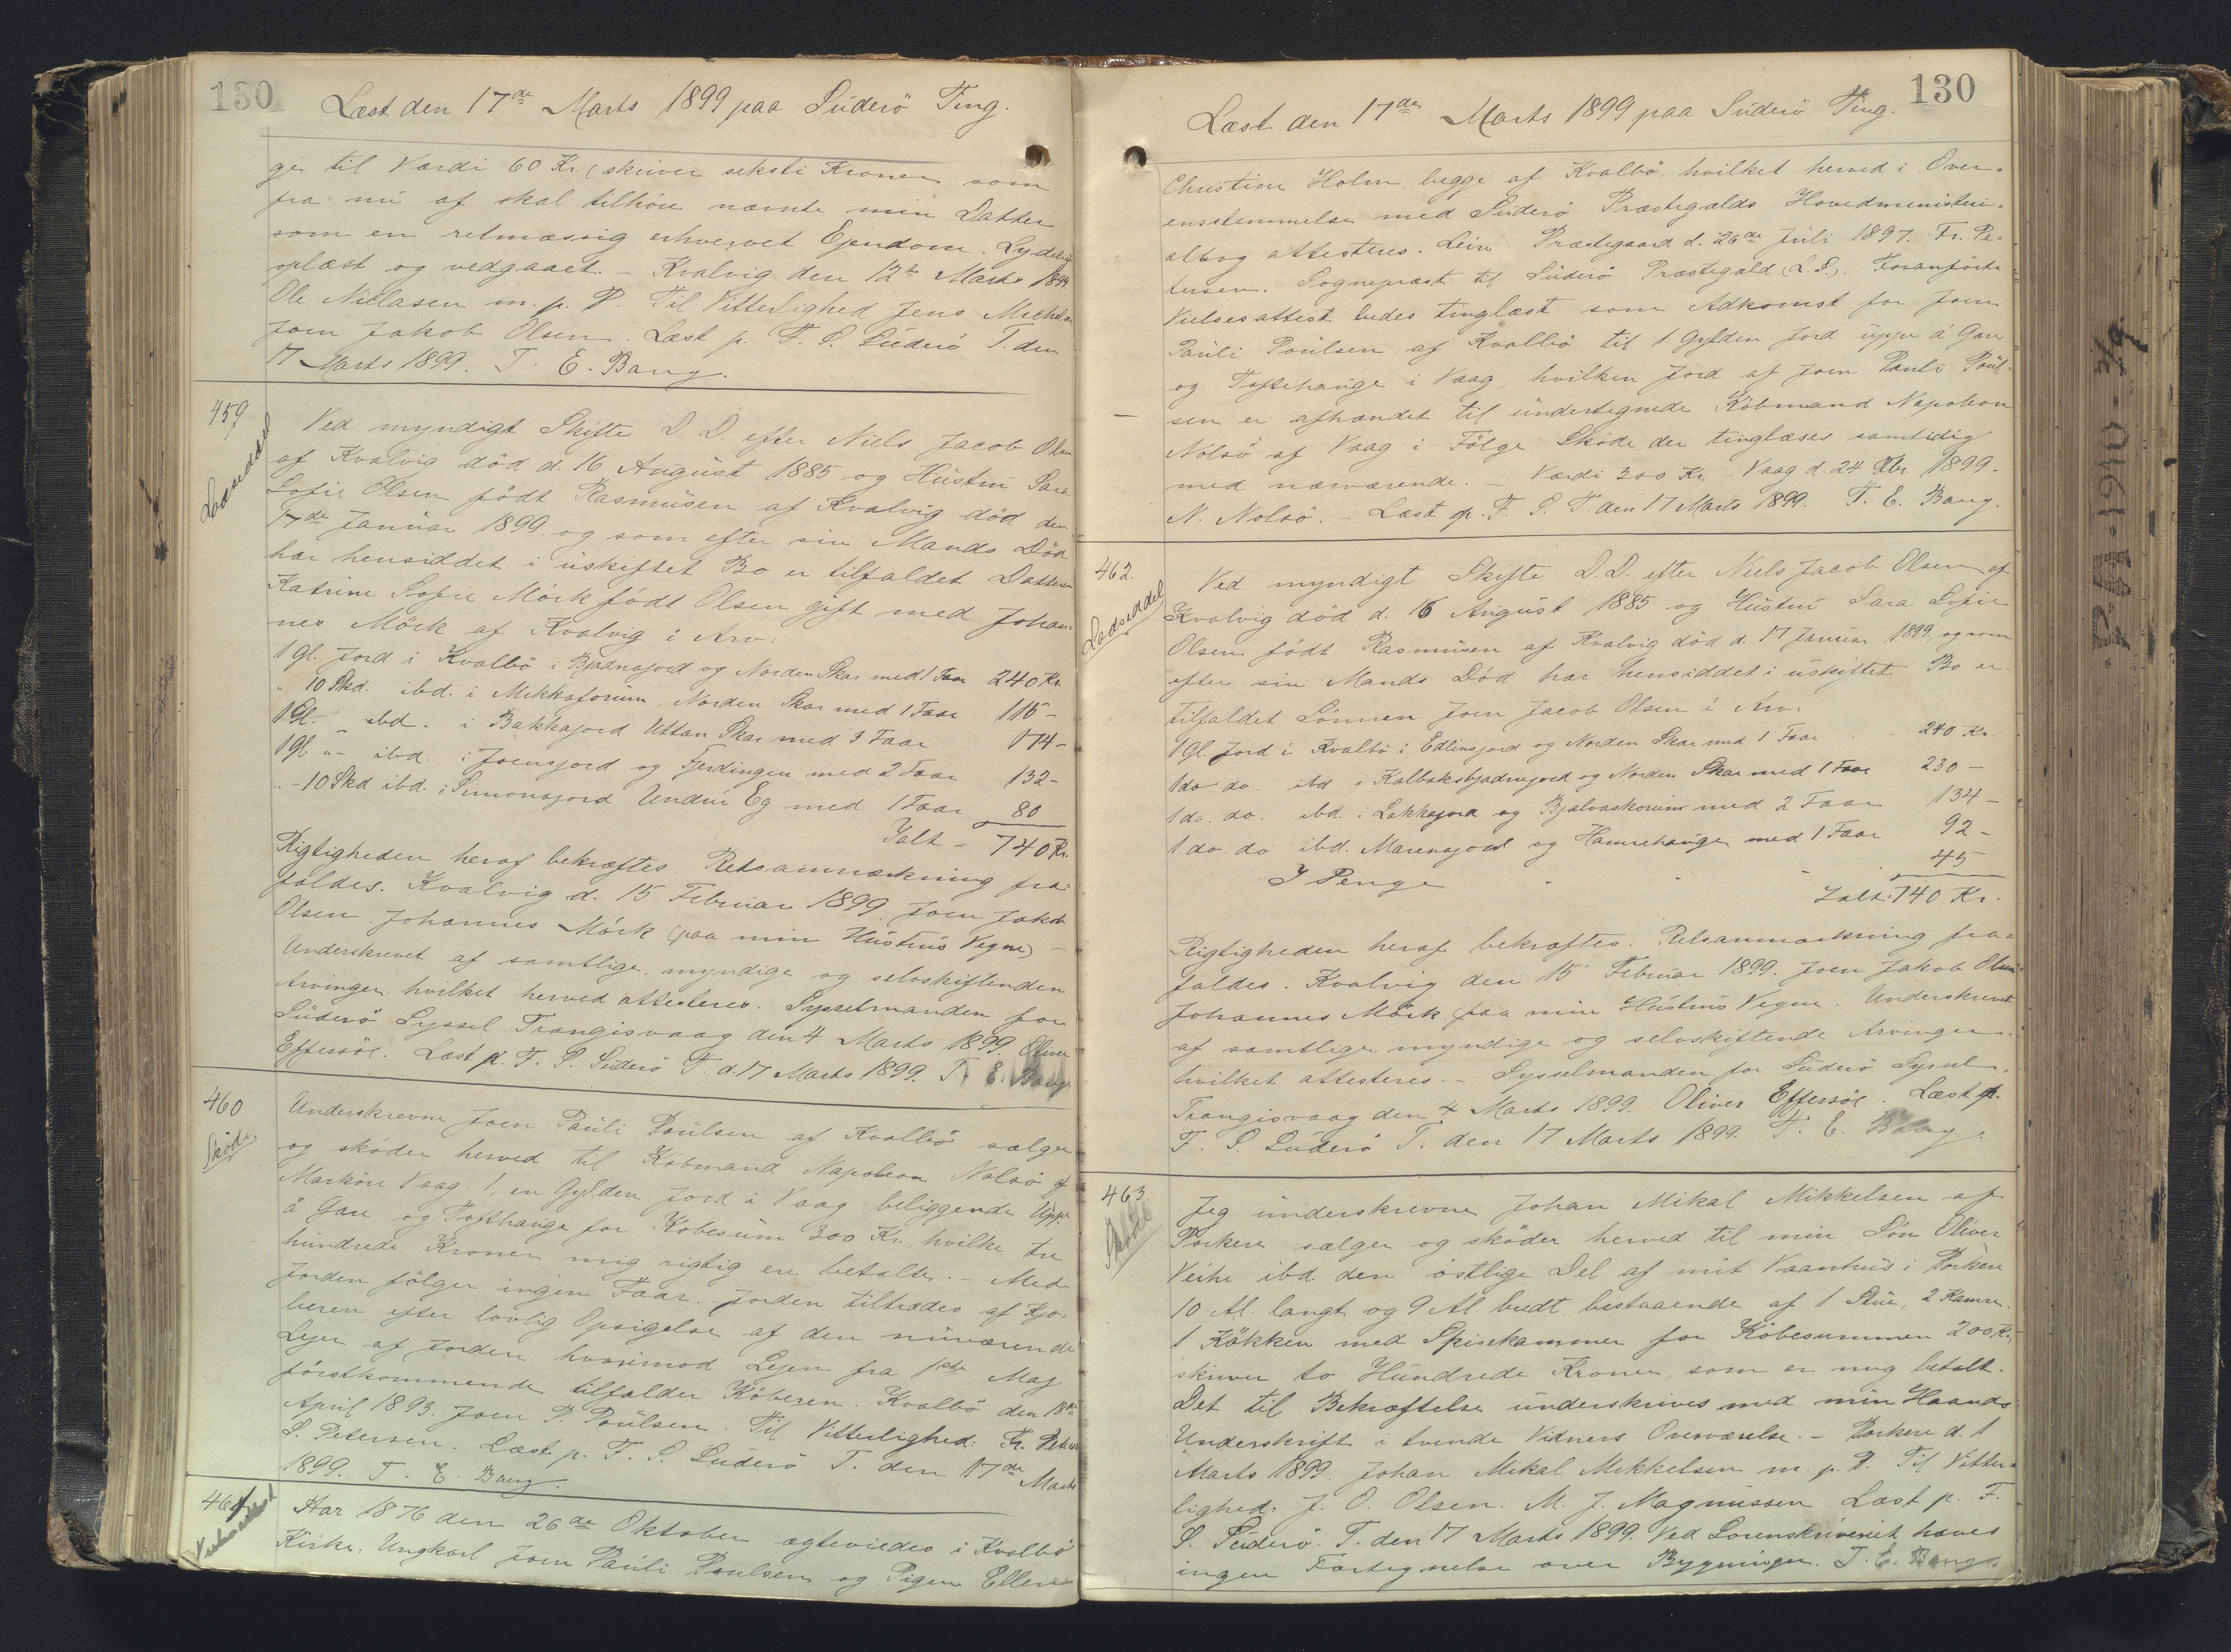 130
Læst den 17de Marts 1899 paa Suderö Ting.
ge til Værdi 60 Kr. (skriver seksti Kroner som
fra nu af skal tilhöre nævnte min Datter
som en retmæssig erhvervet Ejendom. Lydelig
oplæst og vedgaaet. - Kvalvig den 12te Marts 1899
Ole Niclasen m. p. P. Til Vitterlighed Jens Michelsen
Joen Jakob Olsen. Læst p. F. S. Suderö T. den
17 Marts 1899. T. E. Bang.
459
Lodseddel
Ved myndigt Skifte D. D. efter Niels Jacob Olsen
af Kvalvig död d. 16 August 1885 og Hustru Sara
Sofie Olsen födt Rasmusen af Kvalvig död den
17de Januar 1899 og som efter sin Mands Död
har hensiddet i uskiftet Bo er tilfaldet Datteren
Katrine Sofie Mörk födt Olsen gift med Johan-
nes Mörk af Kvalvig i Arv:
1 Gl. Jord i Kvalbö i Bjadnajord og Norden Skar med 1 Faar 240 Kr.
" 10 Skd. ibd. i Mikkaforum, Norden Skar med 1 Faar 115 -
1 Gl. - ibd. i Bakkajord Uttan Skar med 3 Faar 174 -
1 Gl. "- ibd. i Joensjord og Fjerdingen med 2 Faar 132 -
" - 10 Skd ibd. i Simonsjord Undir Eg med 1 Faar 80
Ialt - 740 Kr.
Rigtigheden heraf bekræftes. Retsanmærkning fra-
faldes. Kvalvig d. 15 Februar 1899. Joen Jakob
Olsen. Johannes Mörk (paa min Hustrus Vegne) -
Underskrevet af samtlige, myndige og selvskiftenden
Arvinger, hvilket herved attesteres. Sysselmanden for
Suderö Syssel Trangisvaag den 4 Marts 1899. Oliver
Effersöe. Læst p. F. S. Suderö T. d. 17 Marts 1899. T. E. Bang
460
Sköde
Underskrevne Joen Pauli Poulsen af Kvalbö sælger
og sköder herved til Köbmand Napoleon Nolsö af
Marköre Vaag 1, en Gylden Jord i Vaag beliggende Uppi
á Gare og Tofthauge for Kobesum 300 Kr. hvilke tre
hundrede Kroner mig rigtig ere betalte. - Med
Jorden fölger ingen Faar. Jorden tiltrædes af Kjö-
beren efter lovlig Opsigelse af den nuværende
Lejer af Jorden hvorimod Lejen fra 1ste Maj
förstkommende tilfalder Köberen. Kvalbö den 18de
April 1893. Joen P. Poulsen. Til Vitterlighed: Fr. Petersen
S. Petersen. Læst p. F. S. Suderö T. den 17de Marts
1899. T. E. Bang.
461
Aar 1876 den 26de Oktober ægteviedes i Kvalbö
Kirke: Ungkarl Joen Pauli Poulsen og Pigen Ellen
130
Læst den 17de Marts 1899 paa Suderö Ting.
Christine Holm, begge af Kvalbö, hvilket herved i Over-
ensstemmelse med Suderö Præstegælds Hovedministeri-
albog attesteres. Lein Præstegaard d. 26de Juli 1897. Fr. Pe-
tersen. Sognepræst til Suderö Præstegæld. (L. S.). Foranförte
Vielsesattest bedes tinglæst som Adkomst for Joen
Pauli Poulsen af Kvalbö til 1 Gylden Jord uppi á Gare
og Toftehauge i Vaag, hvilken Jord af Joen Pauli Poul-
sen er afhændet til undertegnede Köbmand Napoleon
Nolsö af Vaag i Fölge Sköde der tinglæses samtidig
med nærværende. - Værdi 300 Kr. - Vaag d. 24 Febr 1899.
N. Nolsö. - Læst p. F. S. T. den 17 Marts 1899. T. E. Bang.
462.
Lodseddel
Ved myndigt Skifte D. D. efter Niels Jacob Olsen af
Kvalvig död d. 16 August 1885 og Hustru Sara Sofie
Olsen födt Rasmusen af Kvalvig död d. 17 Januar 1899, og som
efter sin Mands Död har hensiddet i uskiftet Bo er
tilfaldet Sönnen Joen Jacob Olsen i Arv:
1 Gl. Jord i Kvalbö i Edlinsjord og Norden Skar med 1 Faar 240 Kr
1 do. do. ibd i Kalbaksbjadnejord og Norden Skar med 1 Faar 230 -
1 do. do. ibd. i Lakkajord og Bjalvaskorum med 2 Faar 134 -
1 do. do ibd. Marenajord og Hamrehauge med 1 Faar 92 -
I Penge 45
Ialt: 740 Kr.
Rigtigheden heraf bekræftes. Retsanmærkning fra-
faldes. Kvalvig den 15 Februar 1899. Joen Jakob Olsen
Johannes Mörk, paa min Hustrus Vegne. Underskrevet
af samtlige, myndige og selvskiftende Arvinger,
hvilket attesteres. - Sysselmanden for Suderö Syssel,
Trangisvaag den 4 Marts 1899. Oliver Effersöe. Læst p.
F. S. Suderö T. den 17 Marts 1899. T. E. Bang.
463.
Sköde
Jeg underskrevne Johan Mikal Mikkelsen af
Porkere sælger og sköder herved til min Sön Oliver
Veihe ibd. den östlige Del af mit Vaanhus i Porkere
10 Al. langt og 9 Al. bredt, bestaaende af 1 Stue, 2 Kamre,
1 Kökken med Spisekammer for Köbesummen 200 Kr,
skriver to Hundrede Kroner, som er mig betalt.
Det til Bekræftelse underskrives med min Haands
Underskrift i tvende Vidners Overværelse. - Porkere d. 1
Marts 1899. Johan Mikal Mikkelsen m. p. P. Til Vitter-
lighed: J. O. Olsen. M. J. Magnussen. Læst p. F.
S. Suderö. T. den 17 Marts 1899. Ved Sorenskriveriet haves
ingen Fortegnelse over Bygninger. T. E. Bang.